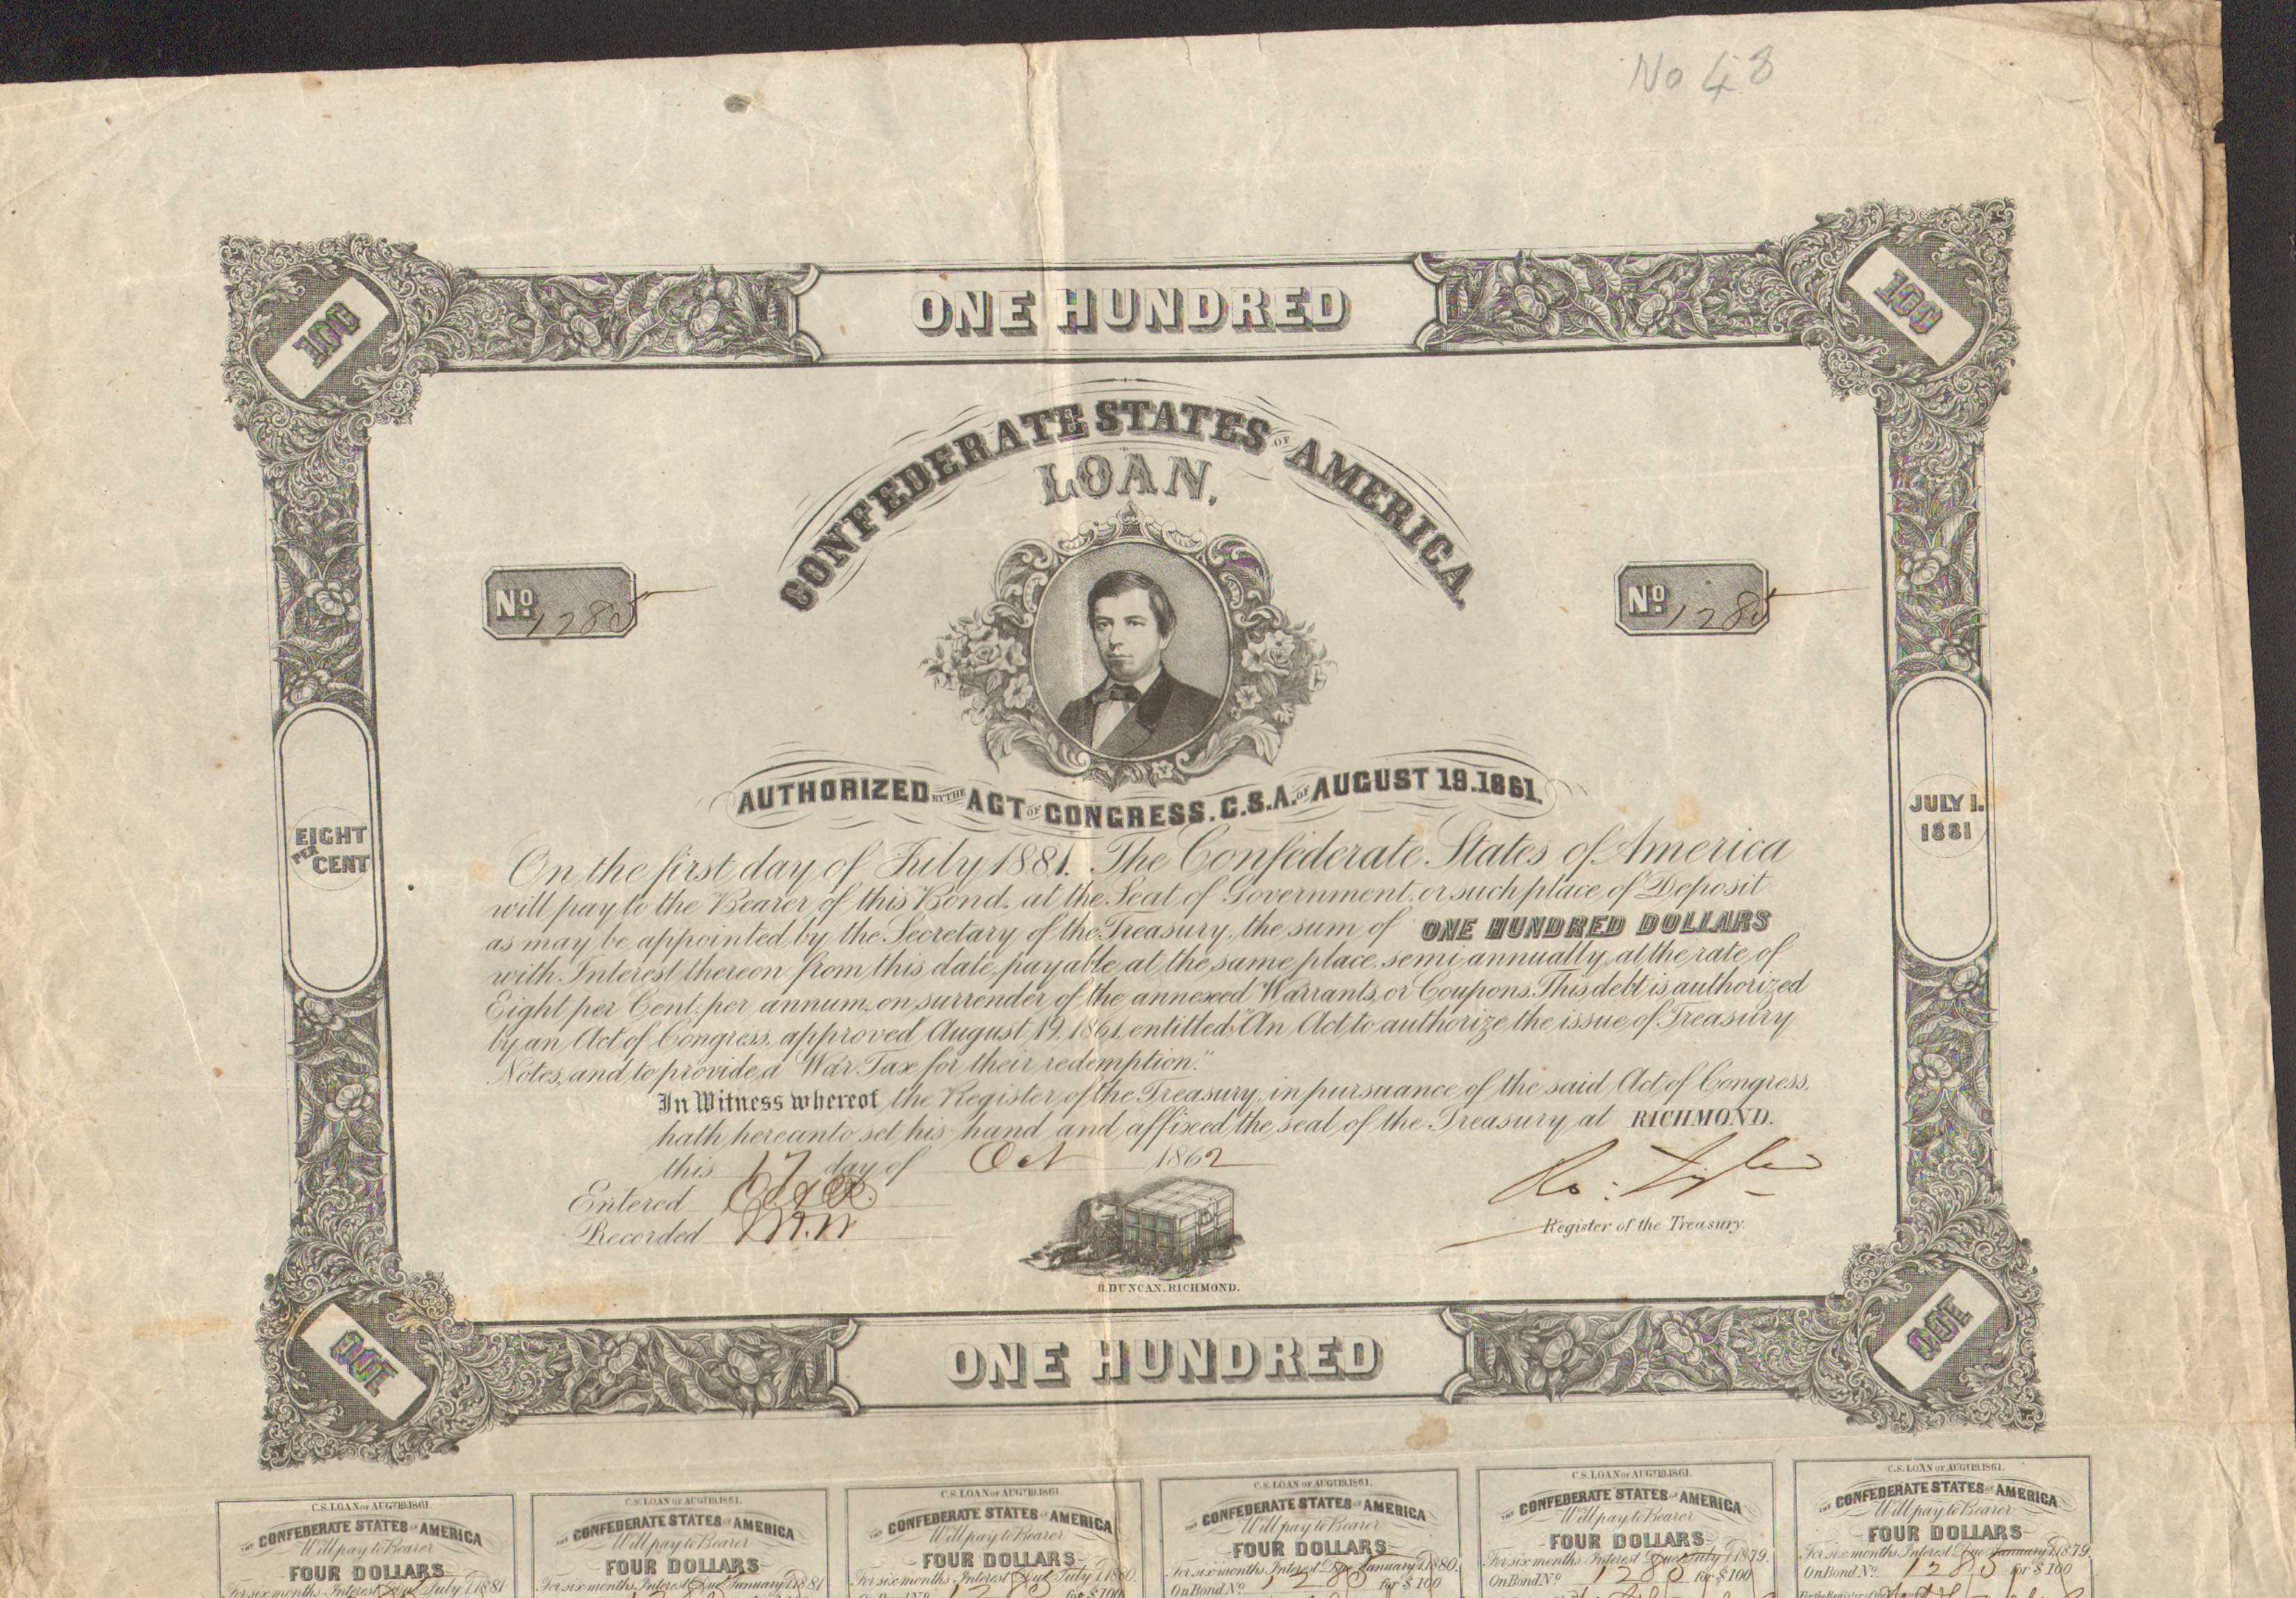 No 48
ONE HUNDRED
100
100
CONFEDERATE STATES OF AMERICA
LOAN,
No. 1285
No. 1285
AUTHORIZED BY THE ACT OF CONGRESS. C.S.A. OF AUGUST 19. 1861.
EIGHT
PER CENT
JULY 1.
1881
On the first day of July 1881. The Confederate States of America
will pay to the Bearer of this Bond, at the Seat of Government, or such place of Deposit
as may be appointed by the Secretary of the Treasury, the sum of ONE HUNDRED DOLLARS
with Interest thereon from this date, payable at the same place, semi annually, at the rate of
Eight per Cent. per annum, on surrender of the annexed Warrants, or Coupons. This debt is authorized
by an Act of Congress, approved August, 19, 1861, entitled, "An Act to authorize the issue of Treasury
Notes, and to provide a War Tax for their redemption."
In Witness whereof the Register of the Treasury, in pursuance of the said Act of Congress,
hath hereunto set his hand and affixed the seal of the Treasury at RICHMOND.
this 17 day of Oct 1862
Entered
Recorded
Ro: Tyler
Register of the Treasury.
B. DUNCAN. RICHMOND.
100
ONE HUNDRED
100
C.S. LOAN OF AUGT 19. 1861.
THE CONFEDERATE STATES OF AMERICA
Will pay to Bearer
FOUR DOLLARS
For six months Interest Due July 1. 1881
C.S. LOAN OF AUGT 19. 1861.
THE CONFEDERATE STATES OF AMERICA
Will pay to Bearer
FOUR DOLLARS
For six months Interest Due January 1. 1881
C.S. LOAN OF AUGT 19. 1861.
THE CONFEDERATE STATES OF AMERICA
Will pay to Bearer
FOUR DOLLARS
For six months Interest Due July 1. 1880.
On Bond No. 1285 for $100
C.S. LOAN OF AUGT 19. 1861.
THE CONFEDERATE STATES OF AMERICA
Will pay to Bearer
FOUR DOLLARS
For six months Interest Due January 1. 1880.
On Bond No. 1285 for $100
C.S. LOAN OF AUGT 19. 1861.
THE CONFEDERATE STATES OF AMERICA
Will pay to Bearer
FOUR DOLLARS
For six months Interest Due July 1. 1879.
On Bond No. 1285 for $100
C.S. LOAN OF AUGT 19. 1861.
THE CONFEDERATE STATES OF AMERICA
Will pay to Bearer
FOUR DOLLARS
For six months Interest Due January 1. 1879.
On Bond No. 1285 for $100